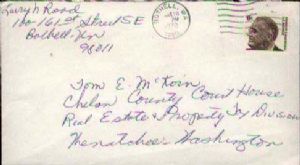 Road
160 161st Street SE
Bothell, Wn
98011
BOTHELL, WA
Tom E. McKoin,
Chelan County Court House
Real Estate & Property Tax Division
Wenatchee, Washington